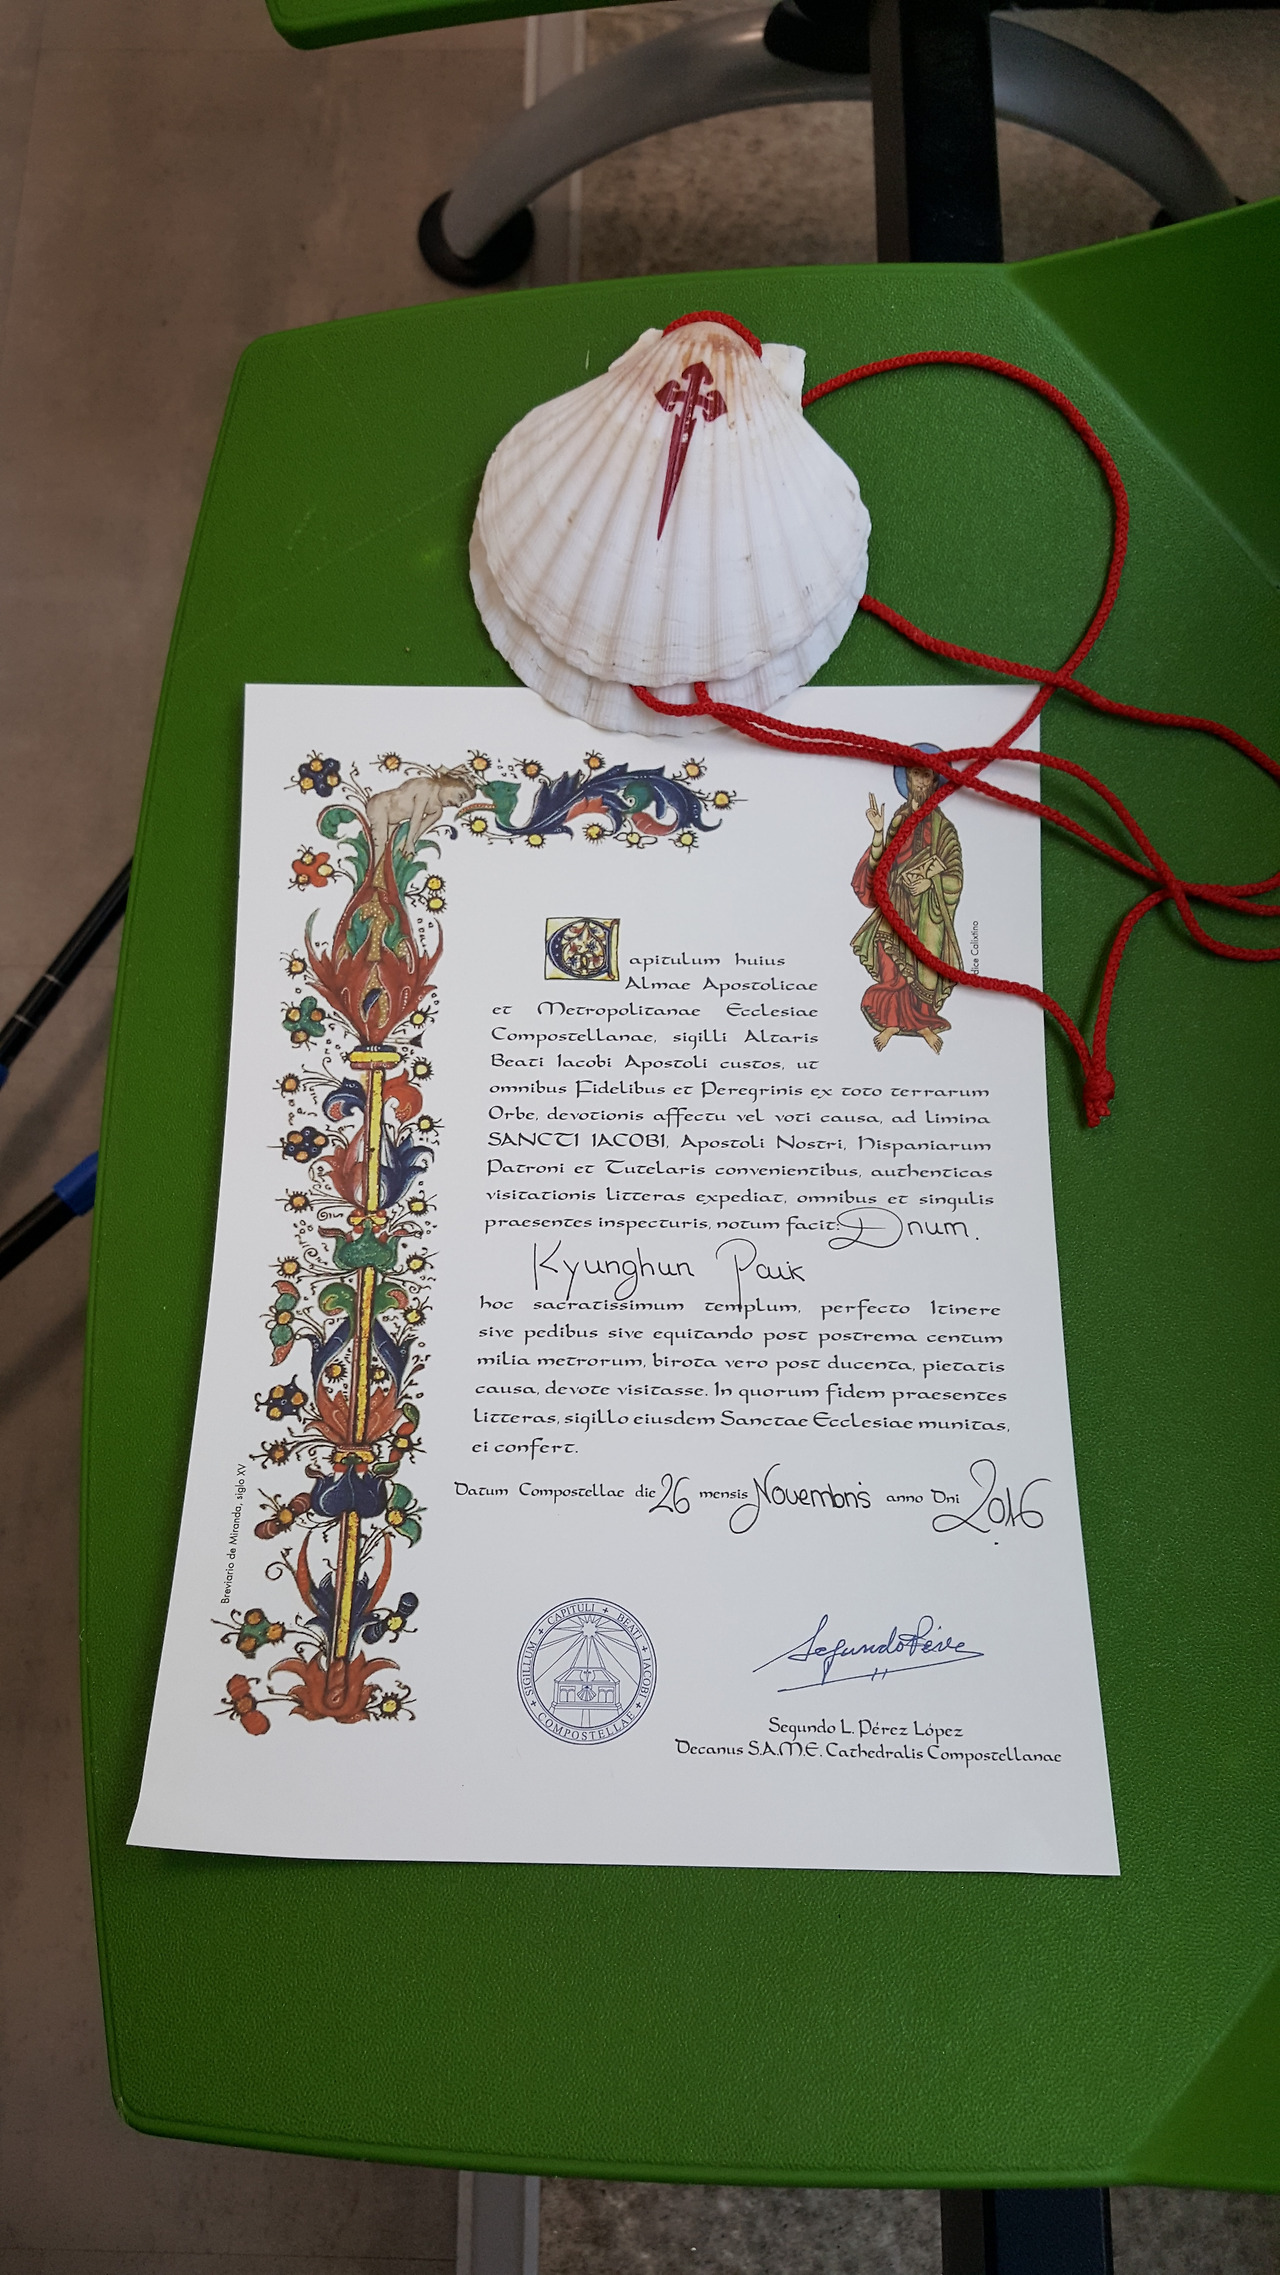 Capitulum huius
Almae Apostolicae
et Metropolitanae Ecclesiae
Compostellanae, sigilli Altaris
Beati Iacobi Apostoli custos, ut
omnibus Fidelibus et Peregrinis ex toto terrarum
Orbe, devotionis affectu vel voti causa, ad limina
SANCTI IACOBI, Apostoli Nostri, Hispaniarum
Patroni et Tutelaris convenientibus, authenticas
visitationis litteras expediat, omnibus et singulis
praesentes inspecturis, notum facit: Dnum.
Kyunghun Paik
hoc sacratissimum templum, perfecto Itinere
sive pedibus sive equitando post postrema centum
milia metrorum, birota vero post ducenta, pietatis
causa, devote visitasse. In quorum fidem praesentes
litteras, sigillo eiusdem Sanctae Ecclesiae munitas,
ei confert.
Datum Compostellae die 26 mensis Novembris anno Dni 2016
Breviario de Miranda, siglo XV
Calixtino
SIGILLUM + CAPITULI + BEATI + IACOBI + COMPOSTELLAE +
Segundo Pérez
Segundo L. Pérez López
Decanus S.A.M.E. Cathedralis Compostellanae